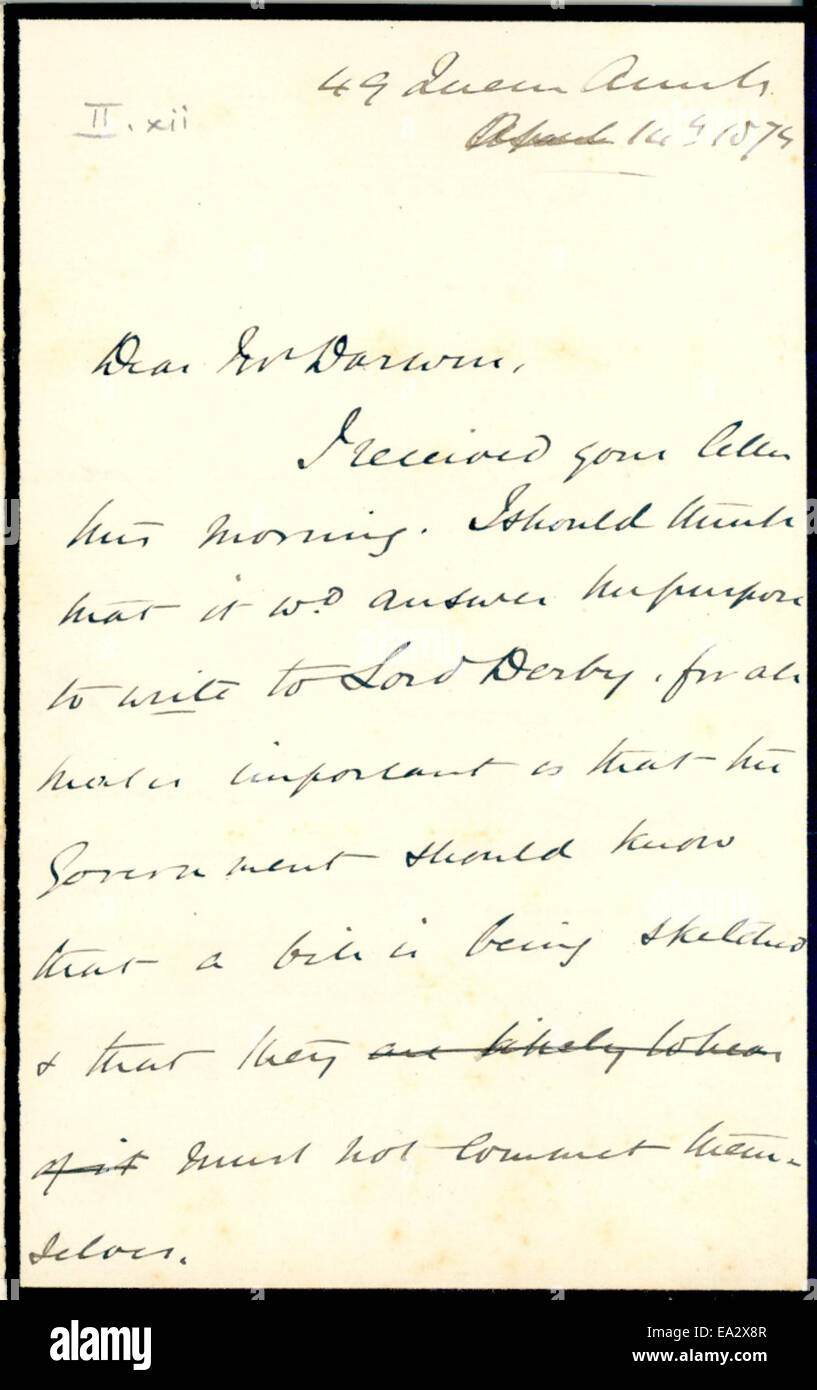 49 Queen Anne St.
II. xii
~~April~~ 14th 1875
Dear Mr Darwin,
I received your letter
this morning. I should think
that it wd answer the purpose
to write to Lord Derby, for all
that is important is that the
Government should know
that a bill is being sketched
& that they ~~are likely to hear~~
~~of it~~ must not commit them-
selves.
alamy
Image ID: EA2X8R
www.alamy.com